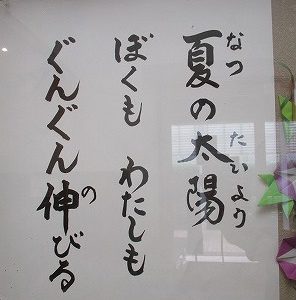 なつ たいよう
夏の太陽
ぼくも わたしも
の
ぐんぐん伸びる